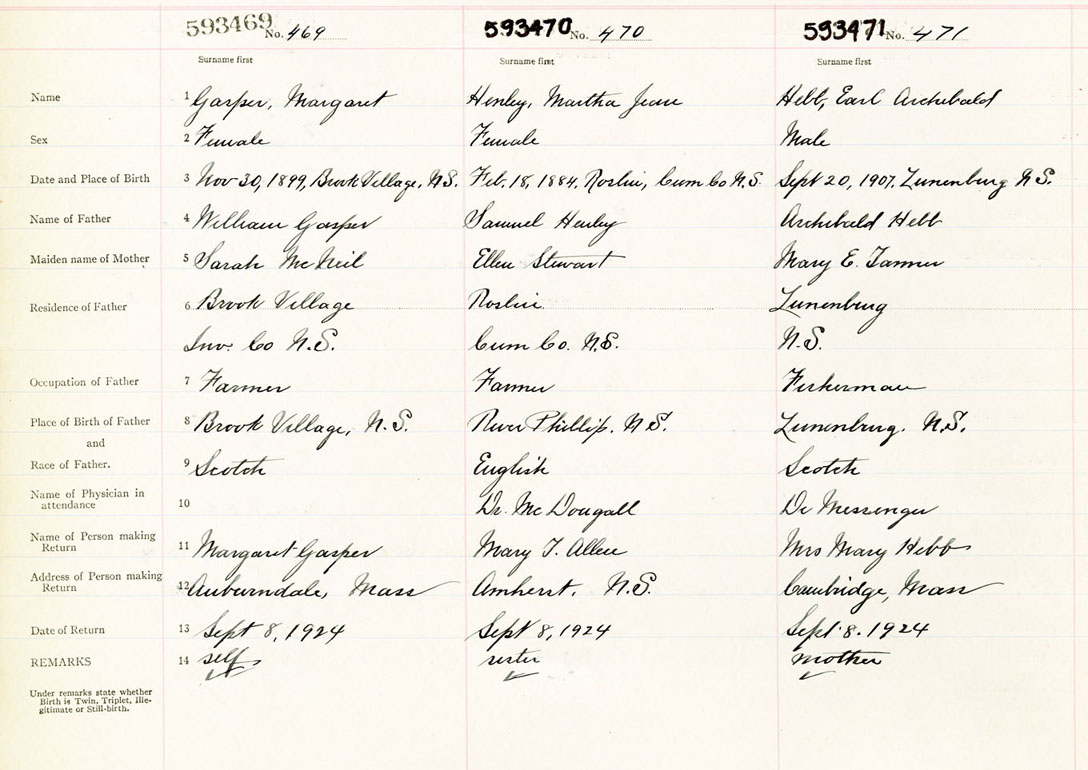 593469 No. 469 593470 No. 470 593471 No. 471
Surname first Surname first Surname first
Name 1 Gasper, Margaret Henley, Martha Jean Hebb, Earl Archibald
Sex 2 Female Female Male
Date and Place of Birth 3 Nov 30, 1899, Brook Village, N.S. Feb. 18, 1884, Roslin, Cum Co N.S. Sept 20, 1907, Lunenburg N S.
Name of Father 4 William Gasper Samuel Henley Archibald Hebb
Maiden name of Mother 5 Sarah McNeil Ellen Stewart Mary E. Tanner
Residence of Father 6 Brook Village Roslin Lunenburg
Inv. Co N.S. Cum Co. N.S. N.S.
Occupation of Father 7 Farmer Farmer Fisherman
Place of Birth of Father 8 Brook Village, N.S. River Phillip, N.S. Lunenburg. N.S.
and
Race of Father. 9 Scotch English Scotch
Name of Physician in
attendance 10 Dr. McDougall Dr Messenger
Name of Person making
Return 11 Margaret Gasper Mary T. Allen Mrs Mary Hebb
Address of Person making
Return 12 Auburndale, Mass Amherst, N.S. Cambridge, Mass
Date of Return 13 Sept 8, 1924 Sept 8, 1924 Sept. 8. 1924
REMARKS 14 self sister mother
Under remarks state whether
Birth is Twin, Triplet, Ille-
gitimate or Still-birth.